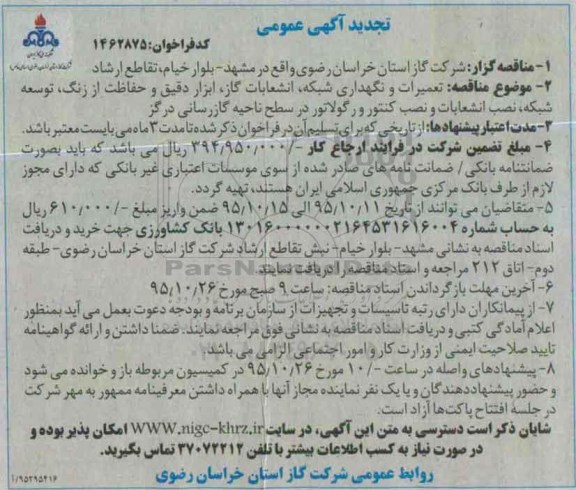 تجدید آگهی عمومی
کدفراخوان: ۱۴۶۲۸۷۵
۱- مناقصه گزار: شرکت گاز استان خراسان رضوی واقع در مشهد- بلوار خیام، تقاطع ارشاد
۲- موضوع مناقصه: تعمیرات و نگهداری شبکه، انشعابات گاز، ابزار دقیق و حفاظت از زنگ، توسعه
شبکه، نصب انشعابات و نصب کنتور و رگولاتور در سطح ناحیه گازرسانی درگز
۳- مدت اعتبار پیشنهادها: از تاریخی که برای تسلیم آن در فراخوان ذکر شده تا مدت ۳ ماه می بایست معتبر باشد.
۴- مبلغ تضمین شرکت در فرایند ارجاع کار -/۳۹۴,۹۵۰,۰۰۰ ریال می باشد که باید بصورت
ضمانتنامه بانکی / ضمانت نامه های صادر شده از سوی موسسات اعتباری غیر بانکی که دارای مجوز
لازم از طرف بانک مرکزی جمهوری اسلامی ایران هستند، تهیه گردد.
۵- متقاضیان می توانند از تاریخ ۹۵/۱۰/۱۱ الی ۹۵/۱۰/۱۵ ضمن واریز مبلغ -/۶۱۰,۰۰۰ ریال
به حساب شماره بانک کشاورزی جهت خرید و دریافت
اسناد مناقصه به نشانی مشهد- بلوار خیام- نبش تقاطع ارشاد شرکت گاز استان خراسان رضوی- طبقه
دوم- اتاق ۲۱۲ مراجعه و اسناد مناقصه را دریافت نمایند.
۶- آخرین مهلت بازگرداندن اسناد مناقصه: ساعت ۹ صبح مورخ ۹۵/۱۰/۲۶
۷- از پیمانکاران دارای رتبه تاسیسات و تجهیزات از سازمان برنامه و بودجه دعوت بعمل می آید بمنظور
اعلام آمادگی کتبی و دریافت اسناد مناقصه به نشانی فوق مراجعه نمایند. ضمنا داشتن و ارائه گواهینامه
تایید صلاحیت ایمنی از وزارت کار و امور اجتماعی الزامی می باشد.
۸- پیشنهادهای واصله در ساعت -/۱۰ مورخ ۹۵/۱۰/۲۶ در کمیسیون مربوطه باز و خوانده می شود
و حضور پیشنهاددهندگان و یا یک نفر نماینده مجاز آنها با همراه داشتن معرفینامه ممهور به مهر شرکت
در جلسه افتتاح پاکت ها آزاد است.
شایان ذکر است دسترسی به متن این آگهی، در سایت WWW.nigc-khrz.ir امکان پذیر بوده و
در صورت نیاز به کسب اطلاعات بیشتر با تلفن ۳۷۰۷۲۲۱۲ تماس بگیرید.
روابط عمومی شرکت گاز استان خراسان رضوی
۱/۹۵۲۹۵۴۱۶